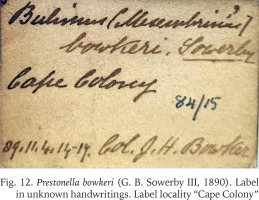 Bulimus (Mesembrinus?)
bowkeri. Sowerby
Cape Colony
84/15
89.11.4.14-17. Col. J. H. Bowker
Fig. 12. Prestonella bowkeri (G. B. Sowerby III, 1890). Label
in unknown handwritings. Label locality “Cape Colony”